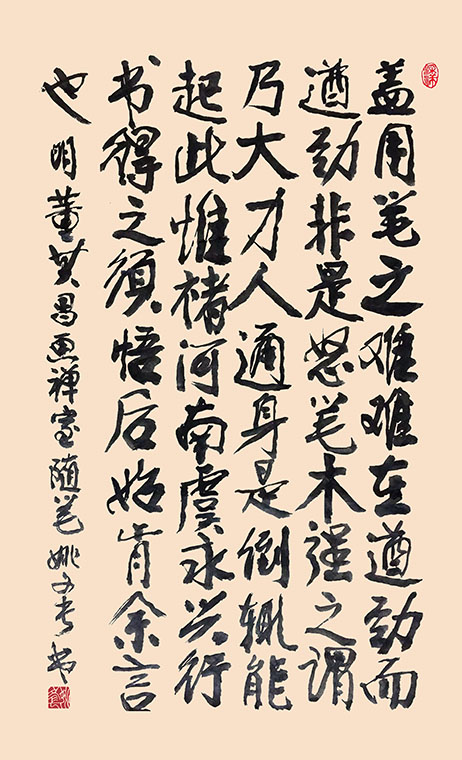 盖用笔之难难在遒劲而
遒劲非是怒笔木强之谓
乃大力人通身是倒辄能
起此惟褚河南虞永兴行
书得之须悟后始肯余言
也 明董其昌画禅室随笔 姚书